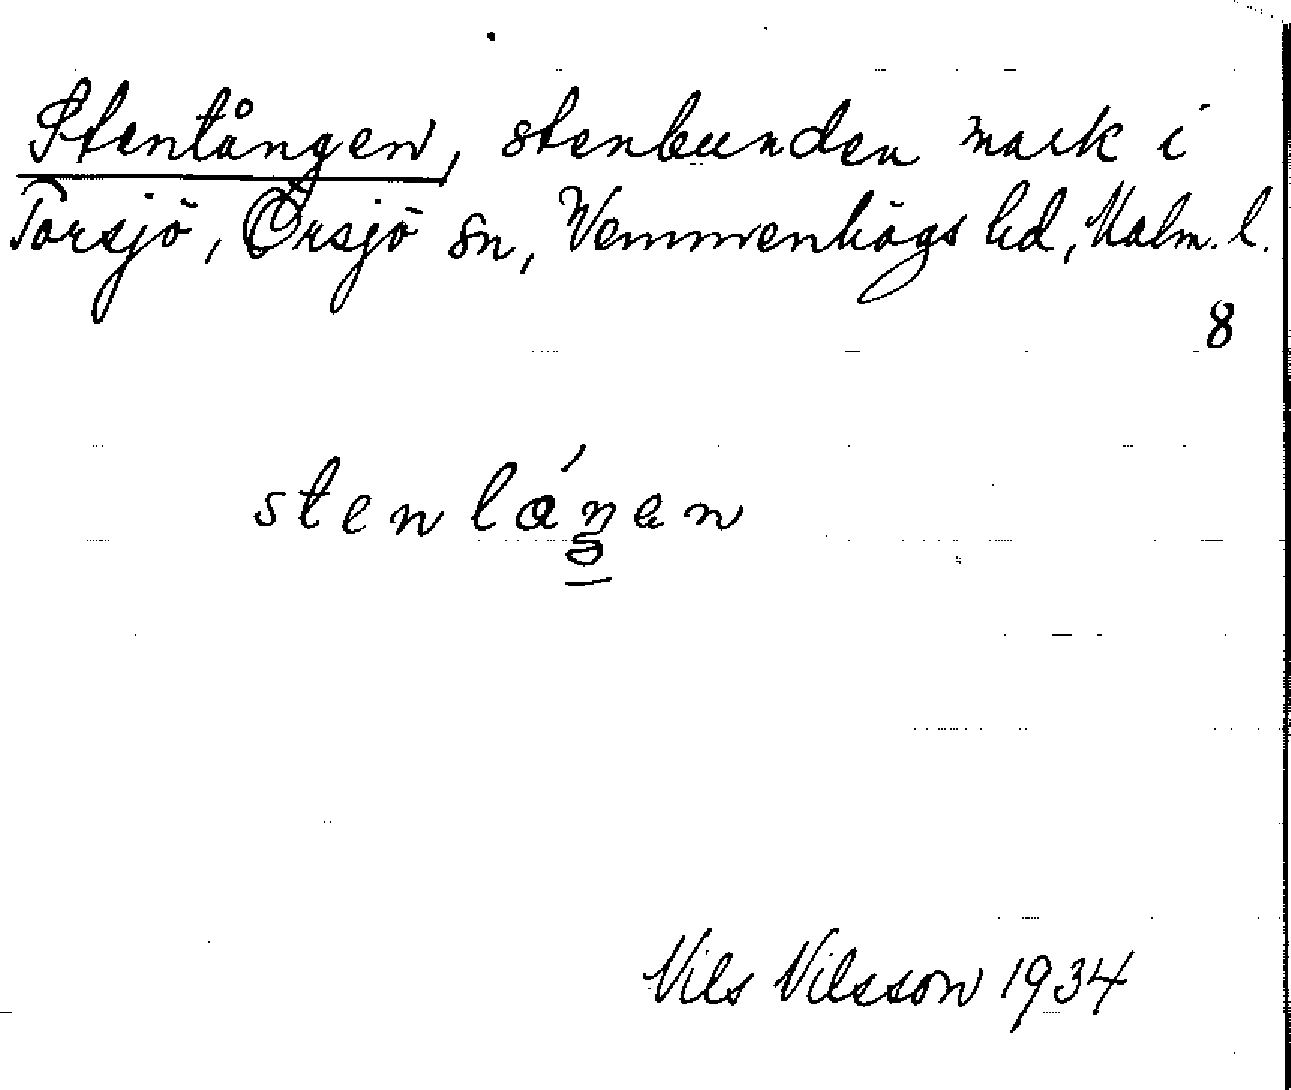 Stentången, stenbunden mark i
Torsjö, Örsjö sn, Vemmenhögs hd, Malm. l.
8
Nils Nilsson 1934